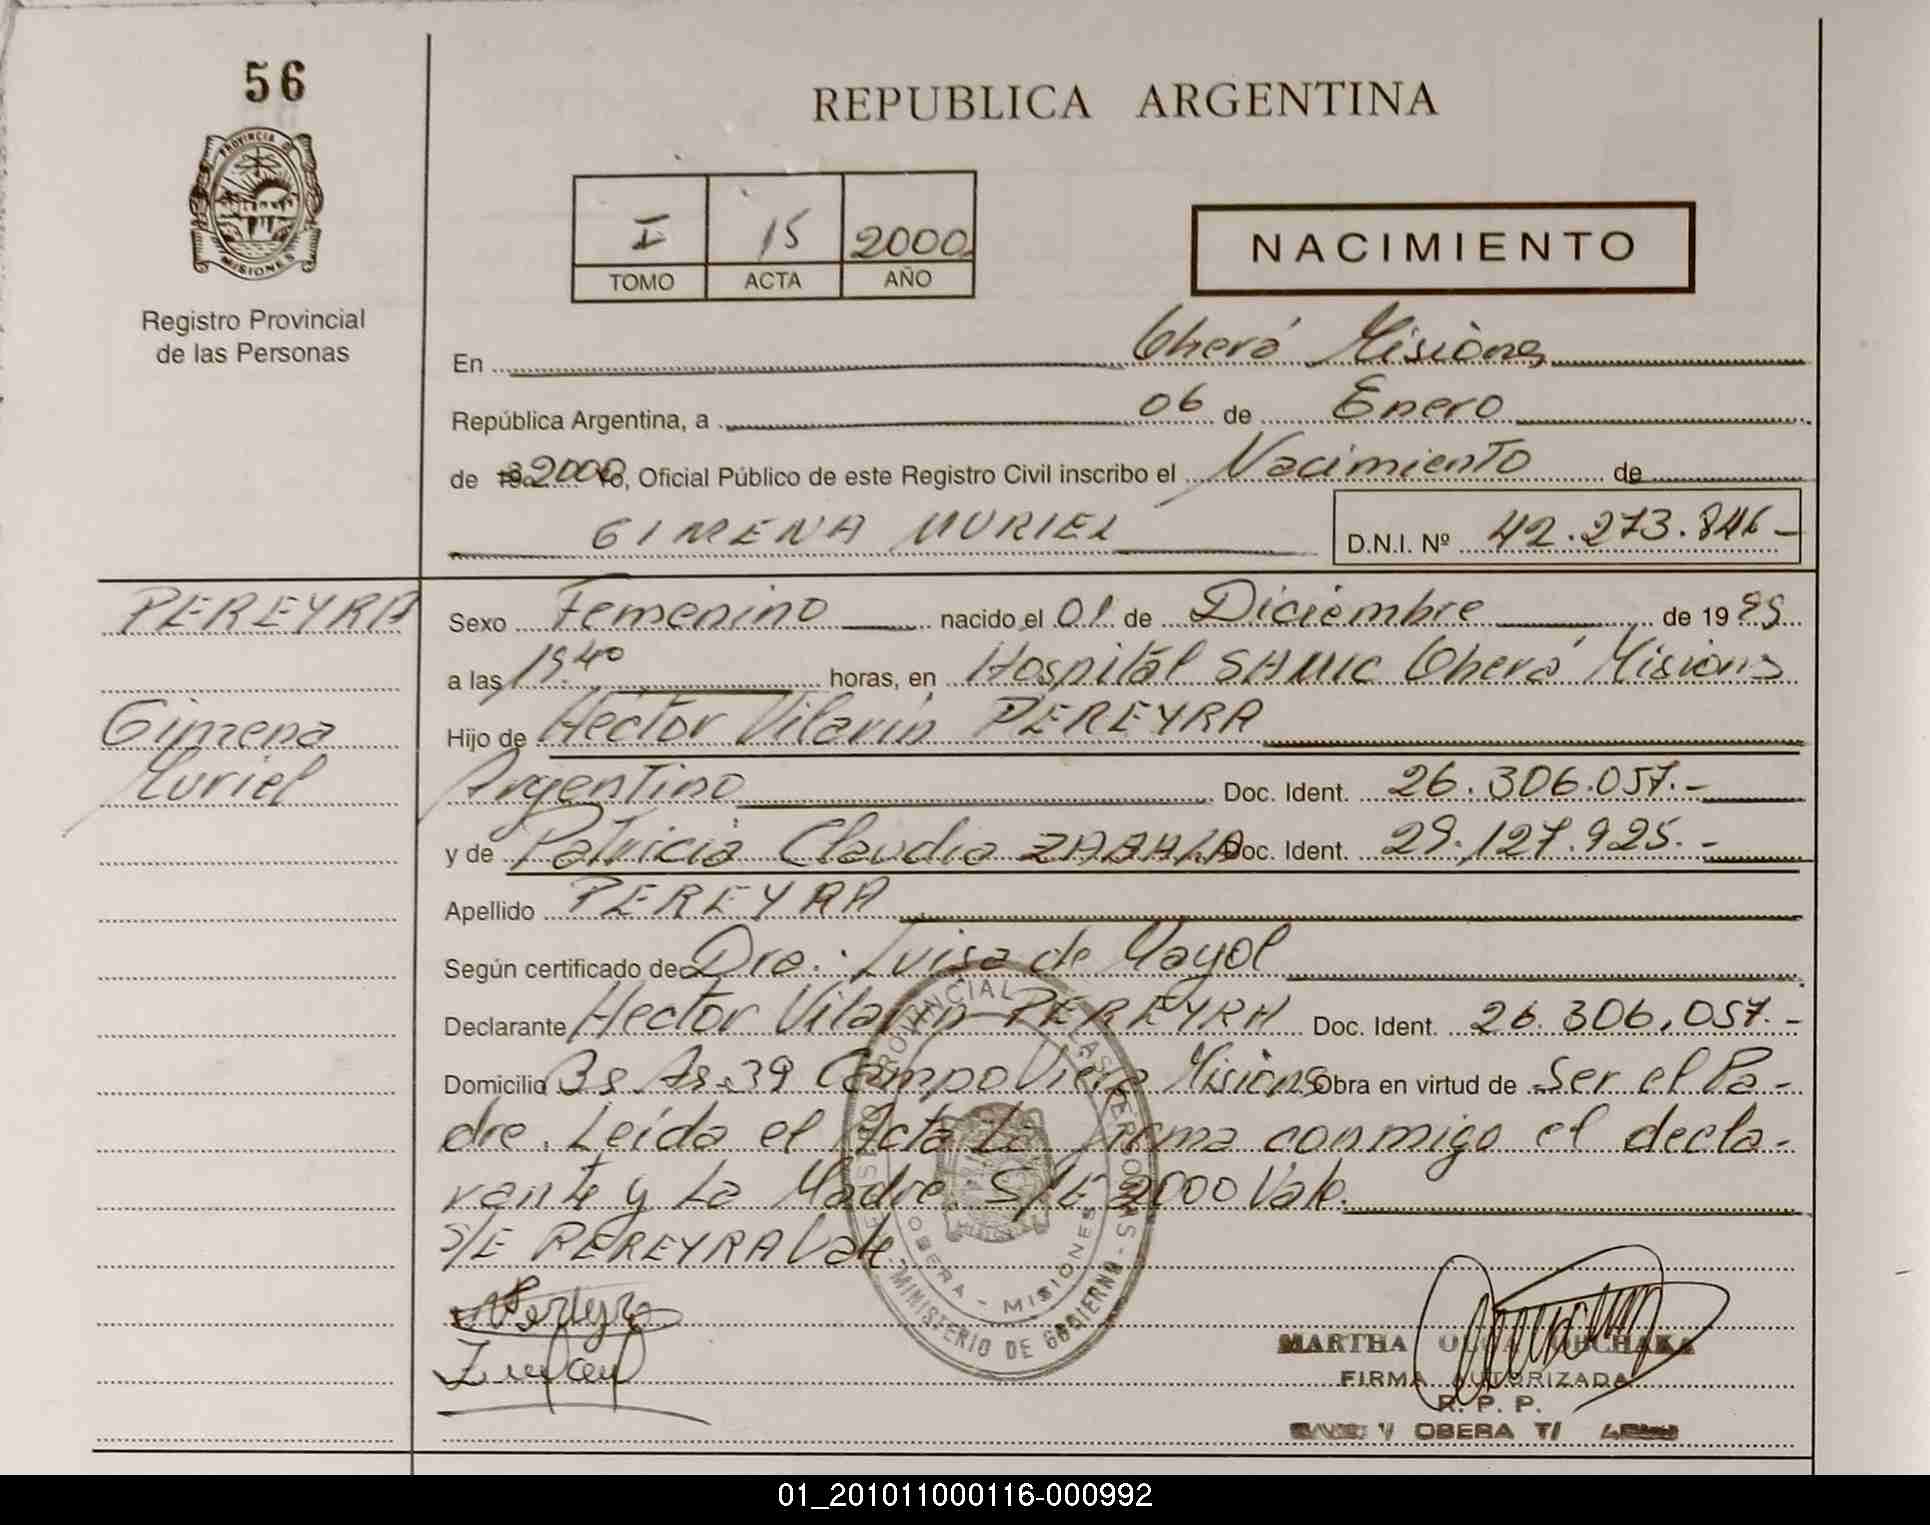 56
PROVINCIA D
MISIONES
Registro Provincial
de las Personas
REPUBLICA ARGENTINA
I 15 2000
TOMO ACTA AÑO
NACIMIENTO
En Oberá Misiones
República Argentina, a 06 de Enero
de 2000 Yo, Oficial Público de este Registro Civil inscribo el Nacimiento de
GIMENA MURIEL D.N.I. Nº 42.273.846-
PEREYRA
Gimena
Muriel
Sexo Femenino nacido el 01 de Diciembre de 1999
a las 19.40 horas, en Hospital SAMIC Oberá Misiones
Hijo de Héctor Vilarin PEREYRA
Argentino Doc. Ident. 26.306.057.-
y de Patricia Claudia ZABALA Doc. Ident. 29.127.925.-
Apellido PEREYRA
Según certificado de Dra. Luisa de Mayol
Declarante Hector Vilarin PEREYRA Doc. Ident. 26.306.057.-
Domicilio Bs As 39 Campo Viera Misiones Obra en virtud de Ser el Pa-
dre. Leída el Acta La firma conmigo el decla-
rante y La Madre. S/E 2000 Vale.
S/E PEREYRA Vale
Pereyra
PROVINCIAL LAS PERSONAS
OBERA - MISIONES
- MINISTERIO DE GOBIERNO -
MARTHA
FIRMA AUTORIZADA
R. P. P.
OBERA T/
01_201011000116-000992